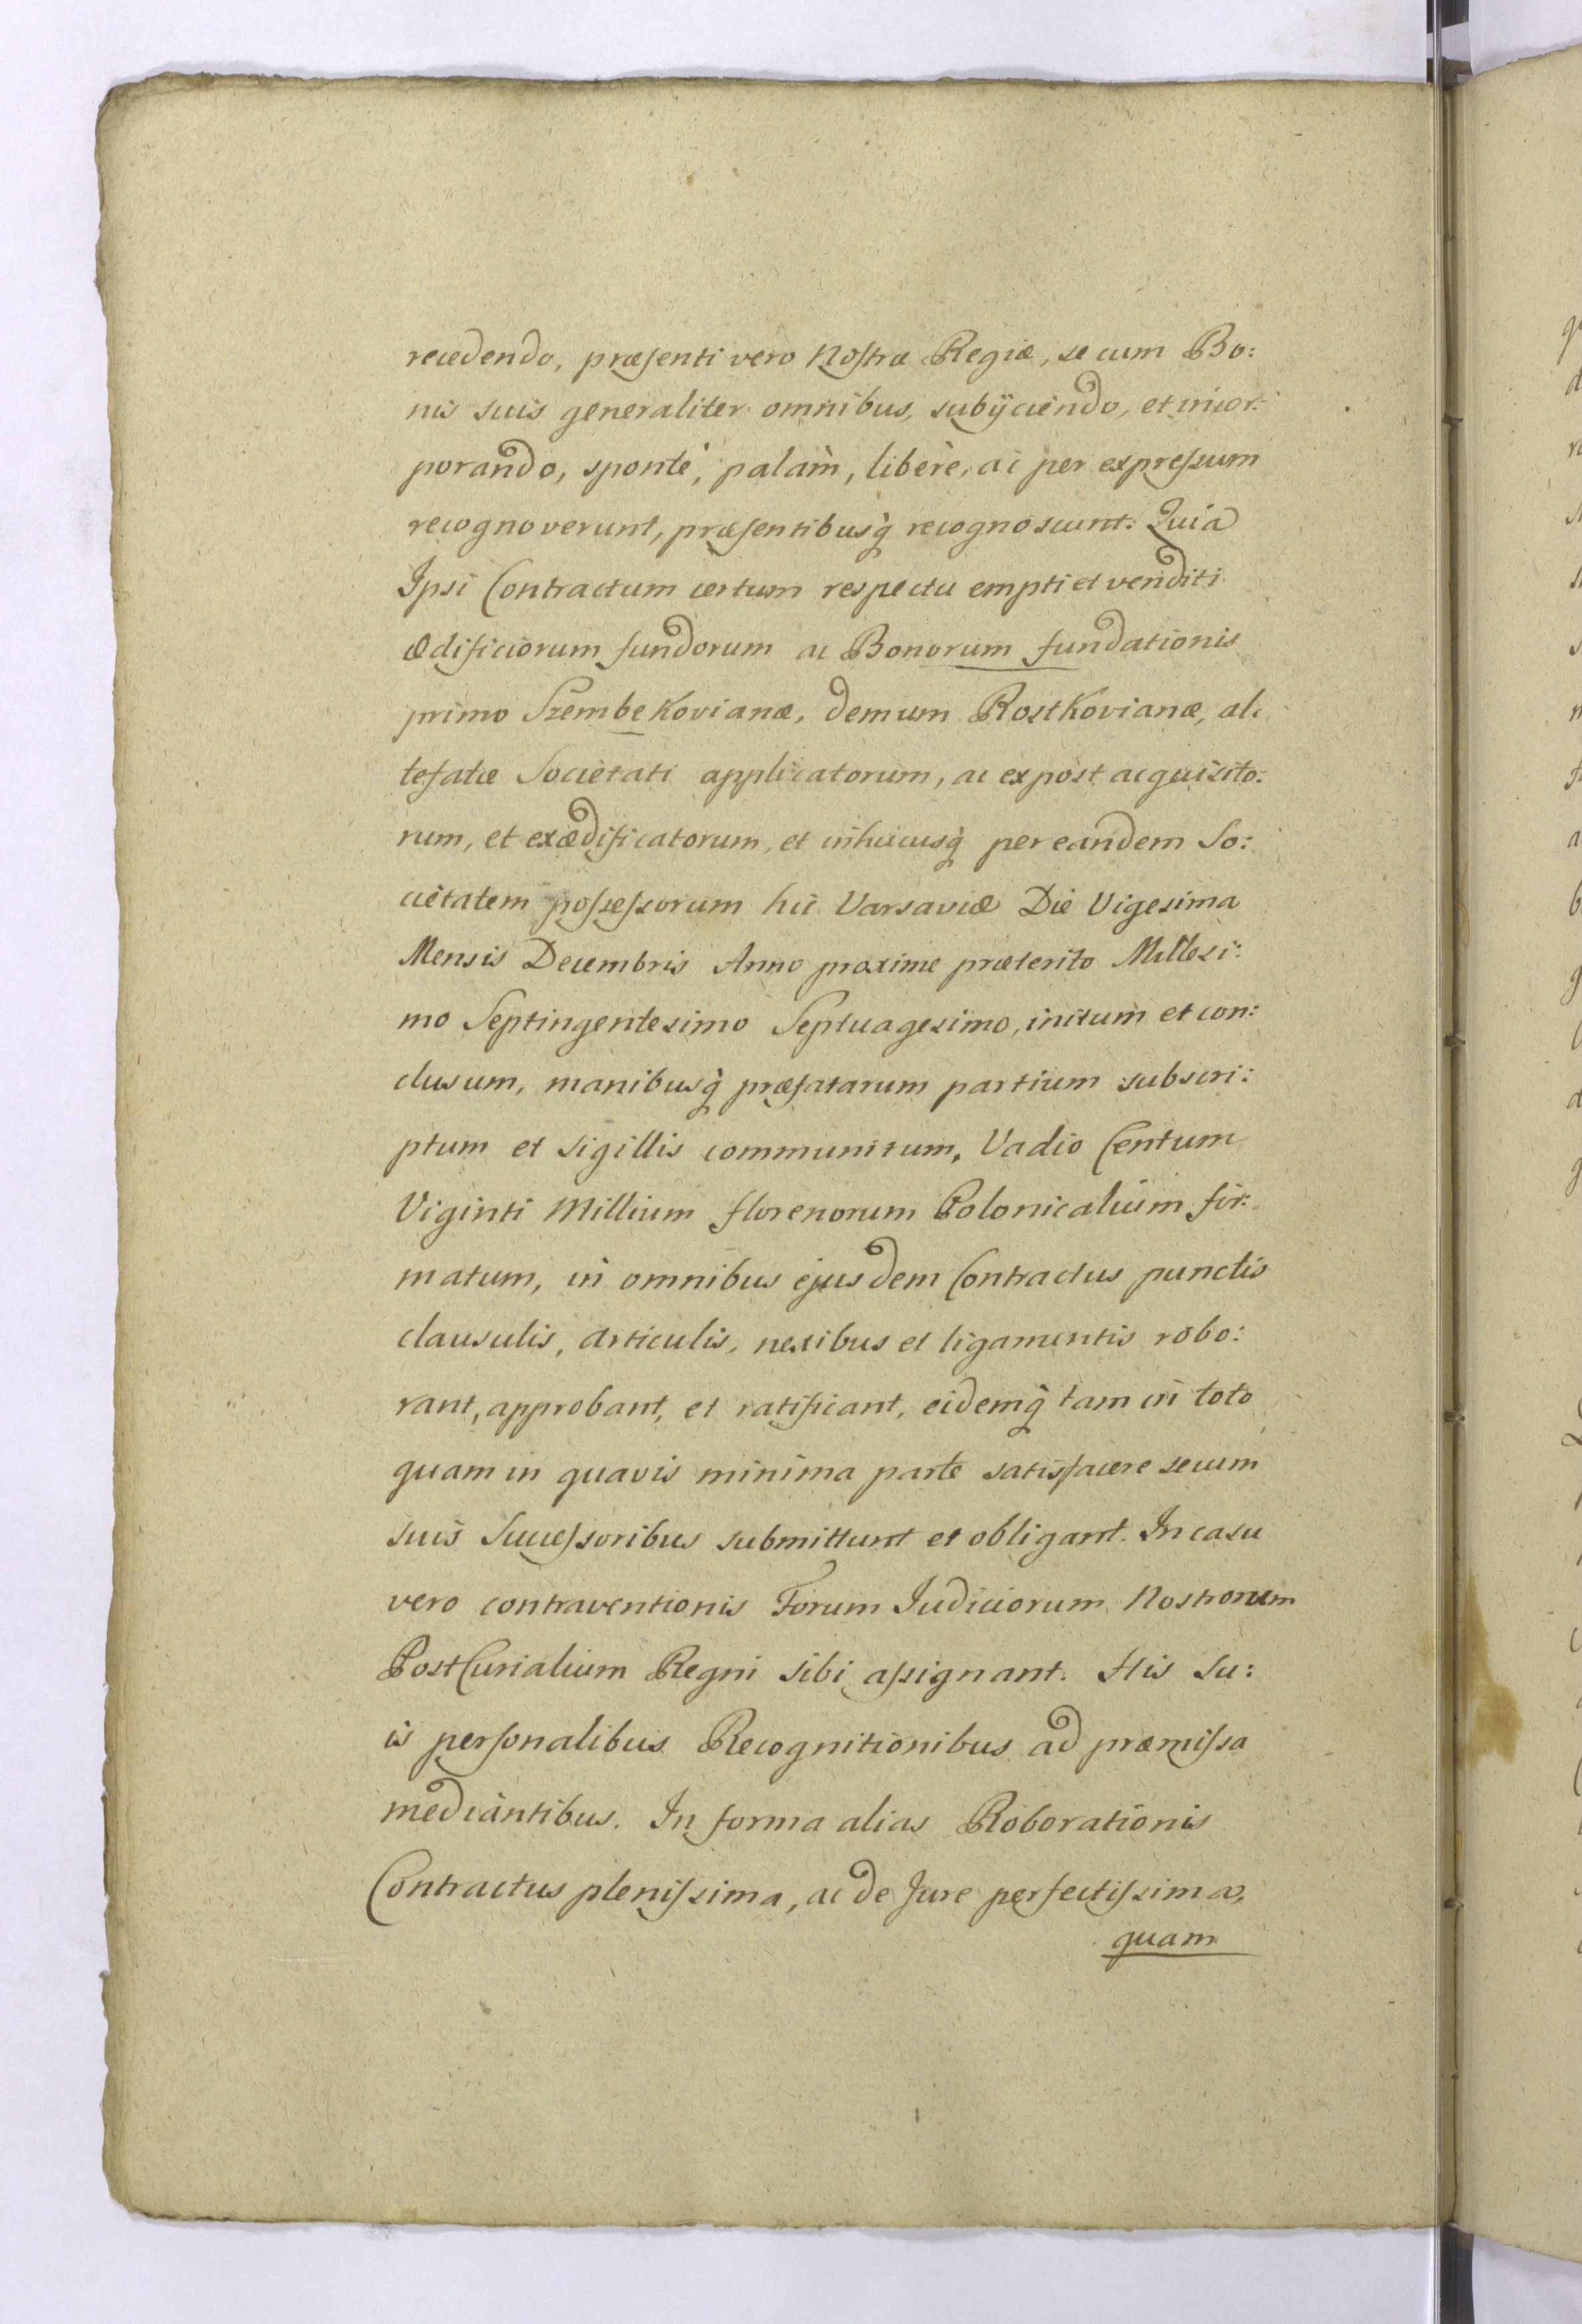 recedendo, præsenti vero Nostræ Regiæ, se cum Bo:
nis suis generaliter omnibus, subijciendo, et incor:
porando, sponte, palàm, liberè, ac per expressum
recognoverunt, præsentibusq̀ recognoscunt. Quia
Ipsi Contractum certum respectu empti et venditi
Ædificiorum fundorum ac Bonorum fundationis
primo Szembekovianæ, demum Rostkovianæ, al:
tefatæ Societati applicatorum, ac ex post acquisito:
rum, et exædificatorum, et inhucusq̀ per eandem So:
cietatem possessorum hic Varsaviæ Die Vigesima
Mensis Decembris Anno proxime præterito Millesi:
mo Septingentesimo Septuagesimo, initum et con:
clusum, manibusq̀ præfatarum partium subscri:
ptum et sigillis communitum, Vadio Centum
Viginti Millium florenorum Polonicalium fir:
matum, in omnibus ejusdem Contractus punctis
clausulis, articulis, nexibus et ligamentis robo:
rant, approbant, et ratificant, eidemq̀ tam in toto
quam in quavis minima parte satisfacere secum
suis Successoribus submittunt et obligant. In casu
vero contraventionis Forum Iudiciorum Nostrorum
PostCurialium Regni sibi assignant. His Su:
is personalibus Recognitionibus ad præmissa
mediantibus. In forma alias Roborationis
Contractus plenissima, ac de Jure perfectissima,
quam